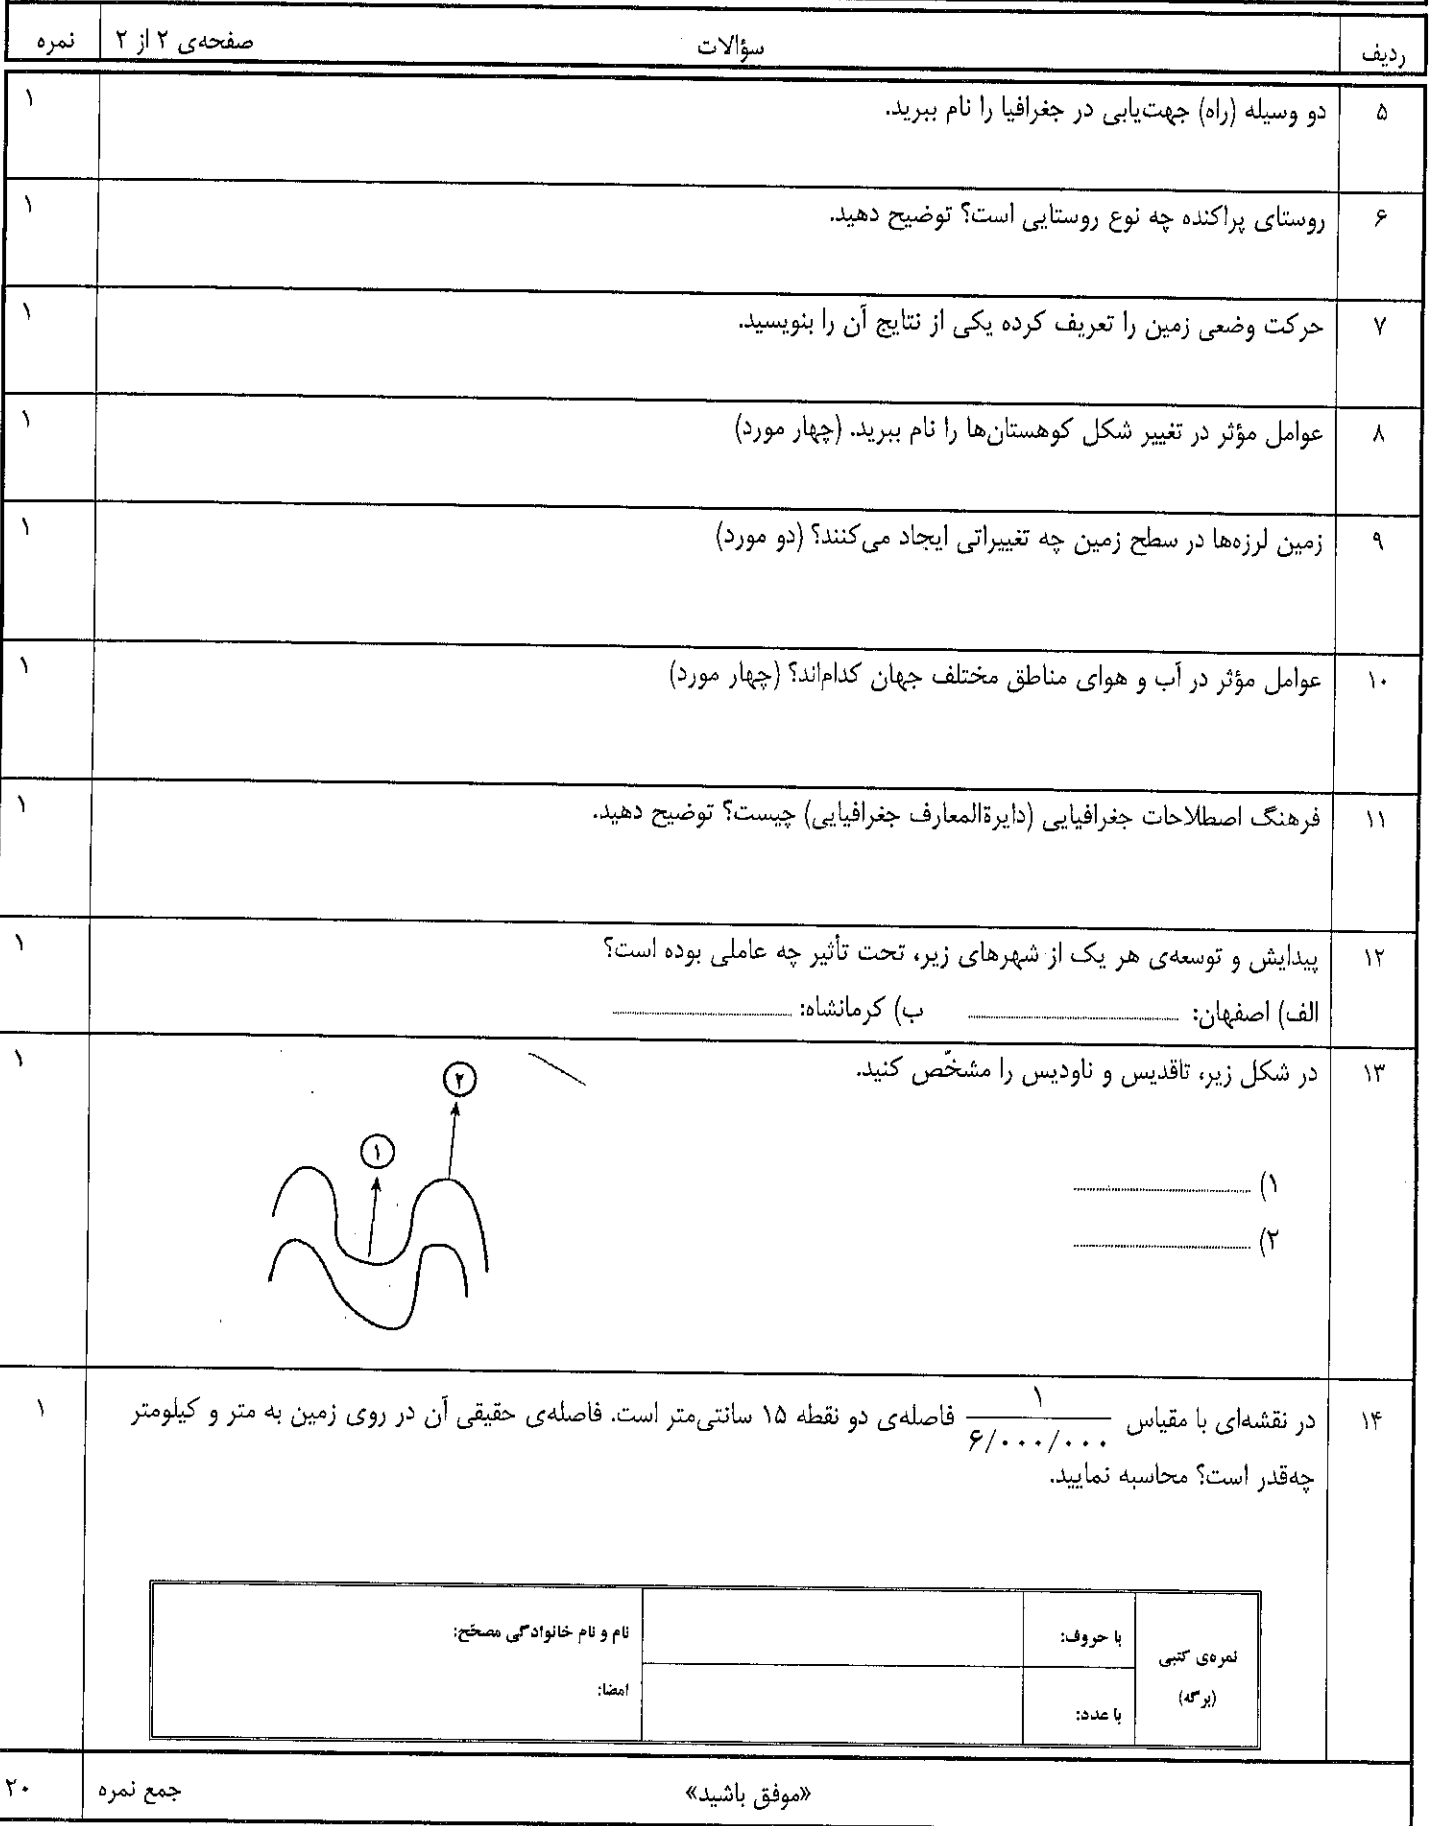 ردیف سؤالات صفحه‌ی ۲ از ۲ نمره
۵ دو وسیله (راه) جهت‌یابی در جغرافیا را نام ببرید. ۱
۶ روستای پراکنده چه نوع روستایی است؟ توضیح دهید. ۱
۷ حرکت وضعی زمین را تعریف کرده یکی از نتایج آن را بنویسید. ۱
۸ عوامل مؤثر در تغییر شکل کوهستان‌ها را نام ببرید. (چهار مورد) ۱
۹ زمین لرزه‌ها در سطح زمین چه تغییراتی ایجاد می‌کنند؟ (دو مورد) ۱
۱۰ عوامل مؤثر در آب و هوای مناطق مختلف جهان کدام‌اند؟ (چهار مورد) ۱
۱۱ فرهنگ اصطلاحات جغرافیایی (دایرةالمعارف جغرافیایی) چیست؟ توضیح دهید. ۱
۱۲ پیدایش و توسعه‌ی هر یک از شهرهای زیر، تحت تأثیر چه عاملی بوده است؟ ۱
الف) اصفهان: .............. ب) کرمانشاه: ..............
۱۳ در شکل زیر، تاقدیس و ناودیس را مشخّص کنید. ۱
۲
۱
۱) ..............
۲) ..............
۱۴ در نقشه‌ای با مقیاس ۱ / ۶/۰۰۰/۰۰۰ فاصله‌ی دو نقطه ۱۵ سانتی‌متر است. فاصله‌ی حقیقی آن در روی زمین به متر و کیلومتر ۱
چه‌قدر است؟ محاسبه نمایید.
نمره‌ی کتبی
(برگه)
با حروف:
با عدد:
نام و نام خانوادگی مصحّح:
امضا:
«موفق باشید» جمع نمره ۲۰